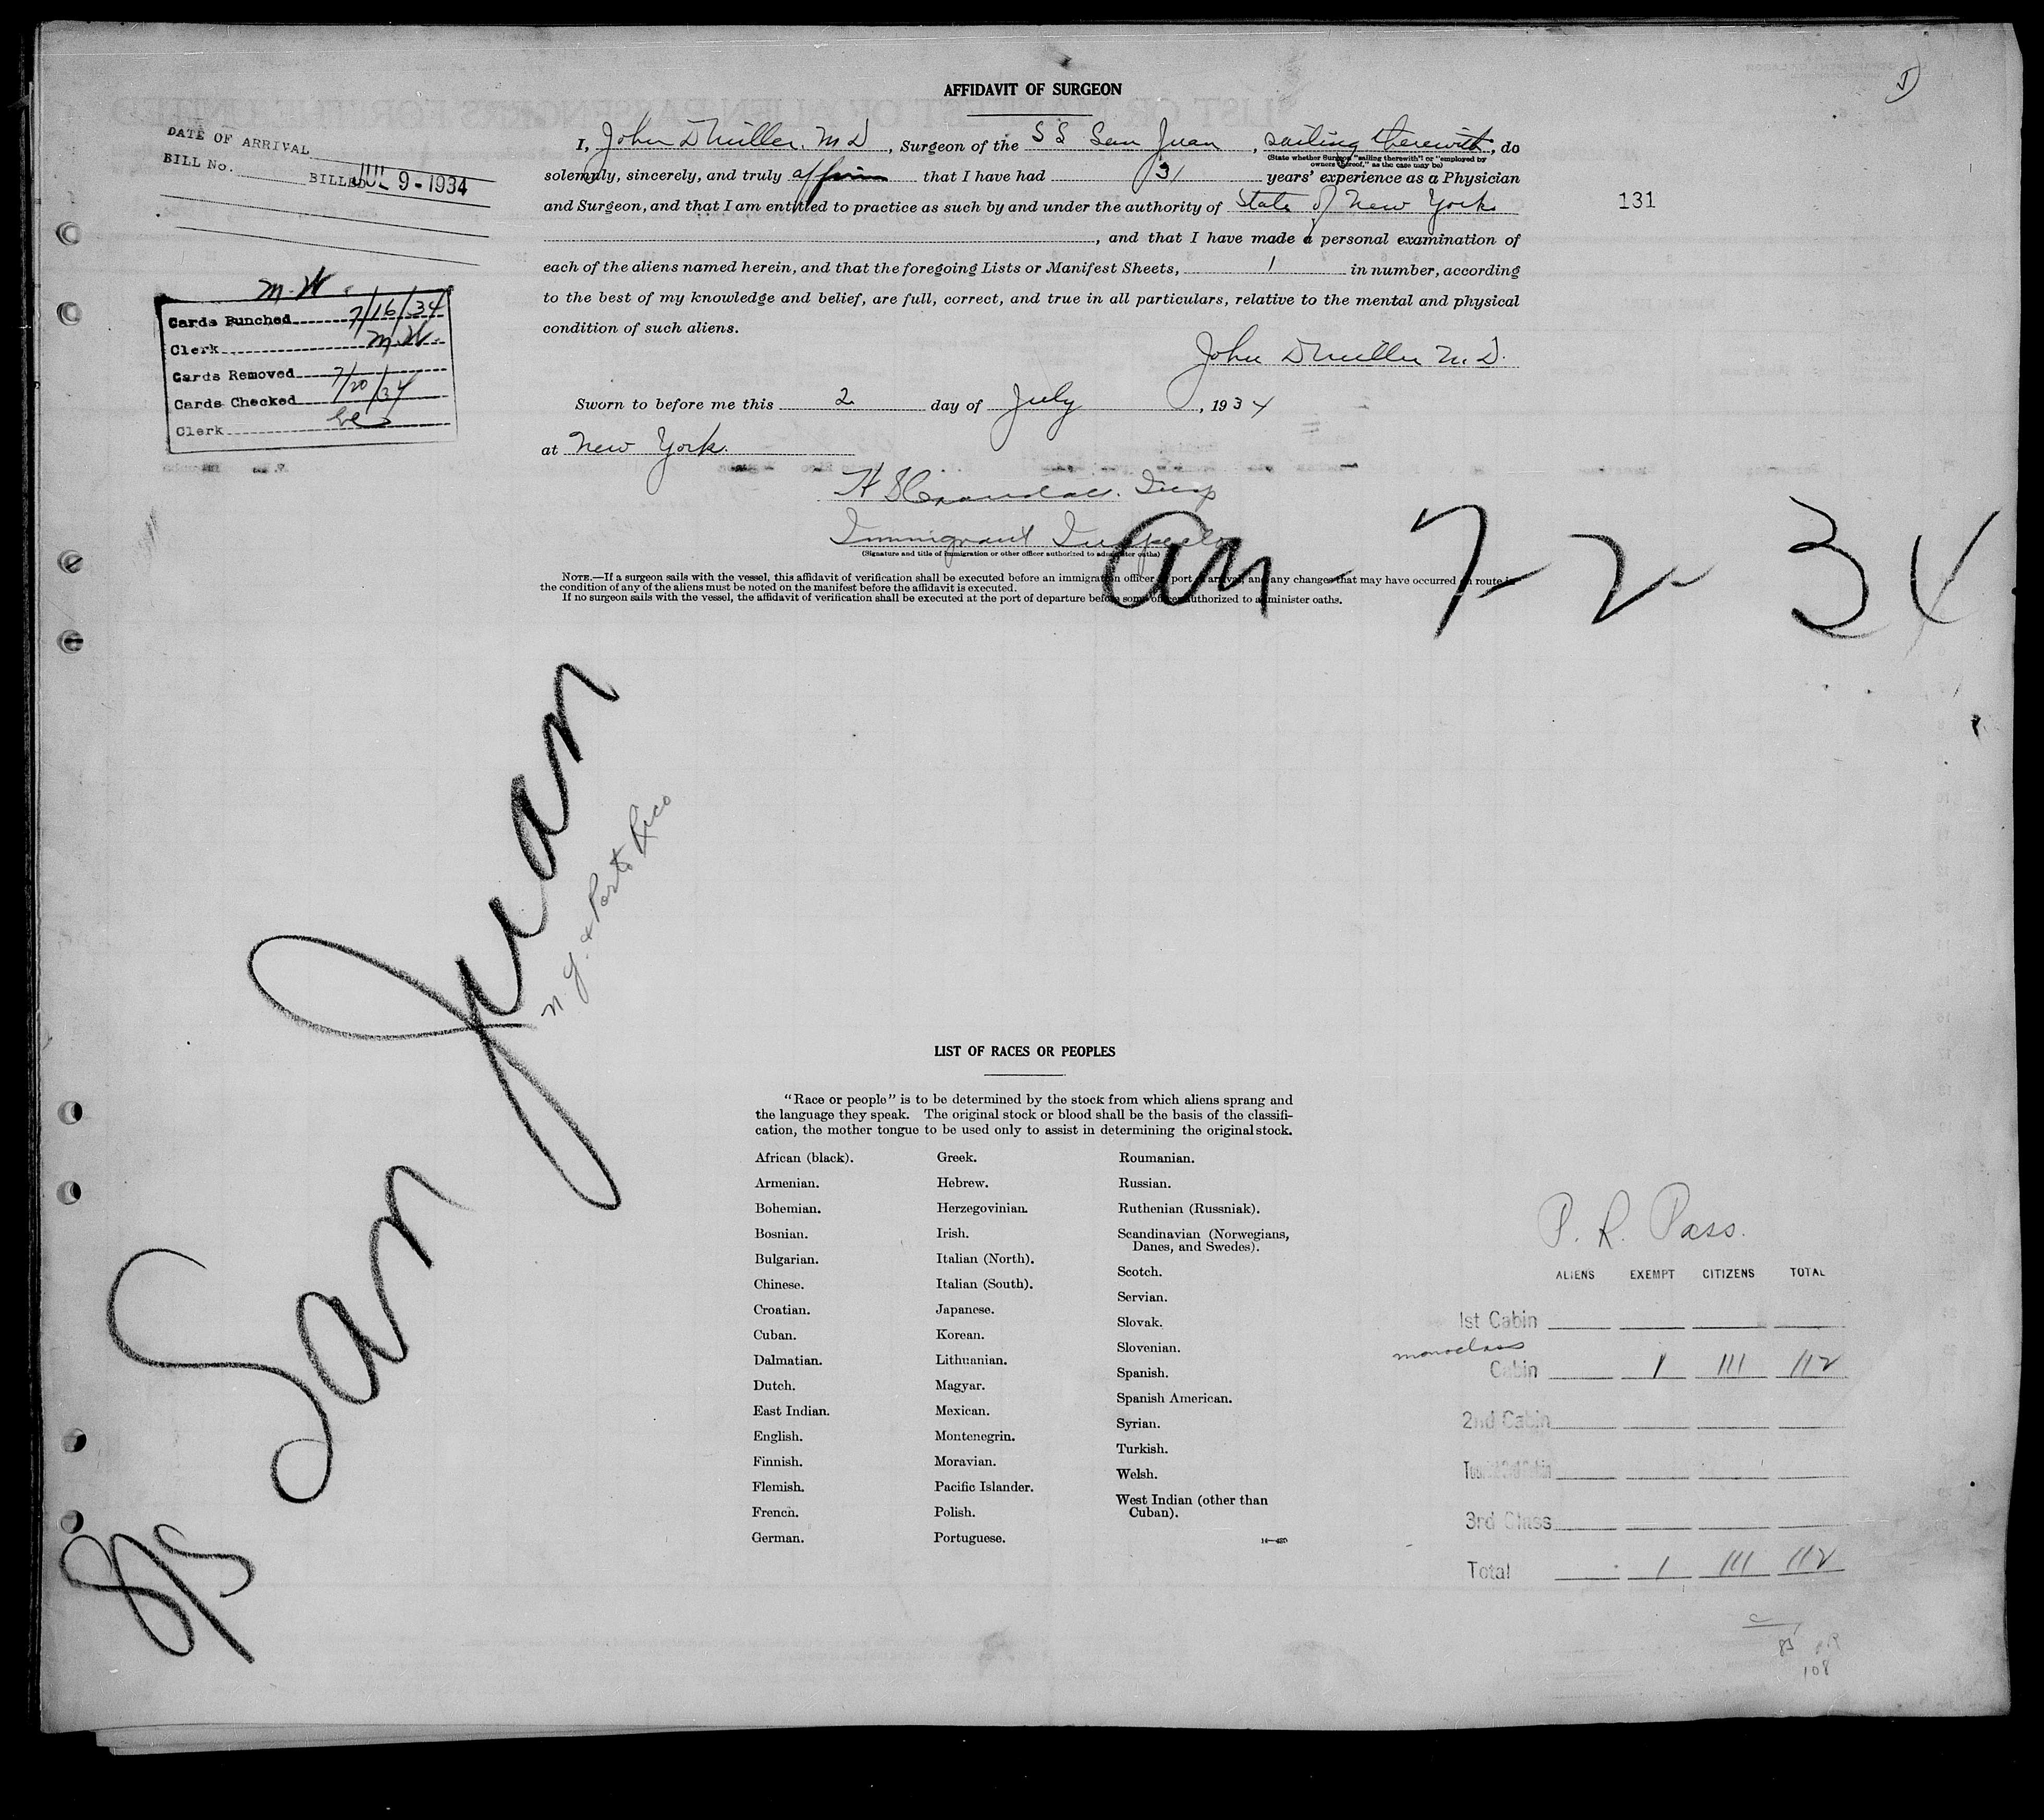 AFFIDAVIT OF SURGEON
I, John D Miller. M D, Surgeon of the S S San Juan, sailing therewith, do
(State whether Surgeon "sailing therewith" or "employed by
owners thereof," as the case may be)
solemnly, sincerely, and truly affirm that I have had 31 years' experience as a Physician
and Surgeon, and that I am entitled to practice as such by and under the authority of State of New York
, and that I have made a personal examination of
each of the aliens named herein, and that the foregoing Lists or Manifest Sheets, 1 in number, according
to the best of my knowledge and belief, are full, correct, and true in all particulars, relative to the mental and physical
condition of such aliens.
John D Miller M. D.
Sworn to before me this 2 day of July, 1934
at New York.
Immigrant Inspector
(Signature and title of immigration or other officer authorized to administer oaths)
NOTE.—If a surgeon sails with the vessel, this affidavit of verification shall be executed before an immigration officer at port of arrival, and any changes that may have occurred en route in
the condition of any of the aliens must be noted on the manifest before the affidavit is executed.
If no surgeon sails with the vessel, the affidavit of verification shall be executed at the port of departure before some officer authorized to administer oaths.
DATE OF ARRIVAL
BILL No. BILLED JUL 9 - 1934
M. W.
Cards Punched 7/16/34
Clerk M. W.
Cards Removed
Cards Checked 7/20/34
Clerk
131
an - 7 - 2 - 34
S/S San Juan
N. Y. & Porto Rico
LIST OF RACES OR PEOPLES
"Race or people" is to be determined by the stock from which aliens sprang and
the language they speak. The original stock or blood shall be the basis of the classifi-
cation, the mother tongue to be used only to assist in determining the original stock.
African (black).
Armenian.
Bohemian.
Bosnian.
Bulgarian.
Chinese.
Croatian.
Cuban.
Dalmatian.
Dutch.
East Indian.
English.
Finnish.
Flemish.
French.
German.
Greek.
Hebrew.
Herzegovinian.
Irish.
Italian (North).
Italian (South).
Japanese.
Korean.
Lithuanian.
Magyar.
Mexican.
Montenegrin.
Moravian.
Pacific Islander.
Polish.
Portuguese.
Roumanian.
Russian.
Ruthenian (Russniak).
Scandinavian (Norwegians,
Danes, and Swedes).
Scotch.
Servian.
Slovak.
Slovenian.
Spanish.
Spanish American.
Syrian.
Turkish.
Welsh.
West Indian (other than
Cuban).
P. R. Pass.
ALIENS EXEMPT CITIZENS TOTAL
1st Cabin
monoclass
Cabin 1 111 112
2nd Cabin
3rd Class
Total 1 111 112
108